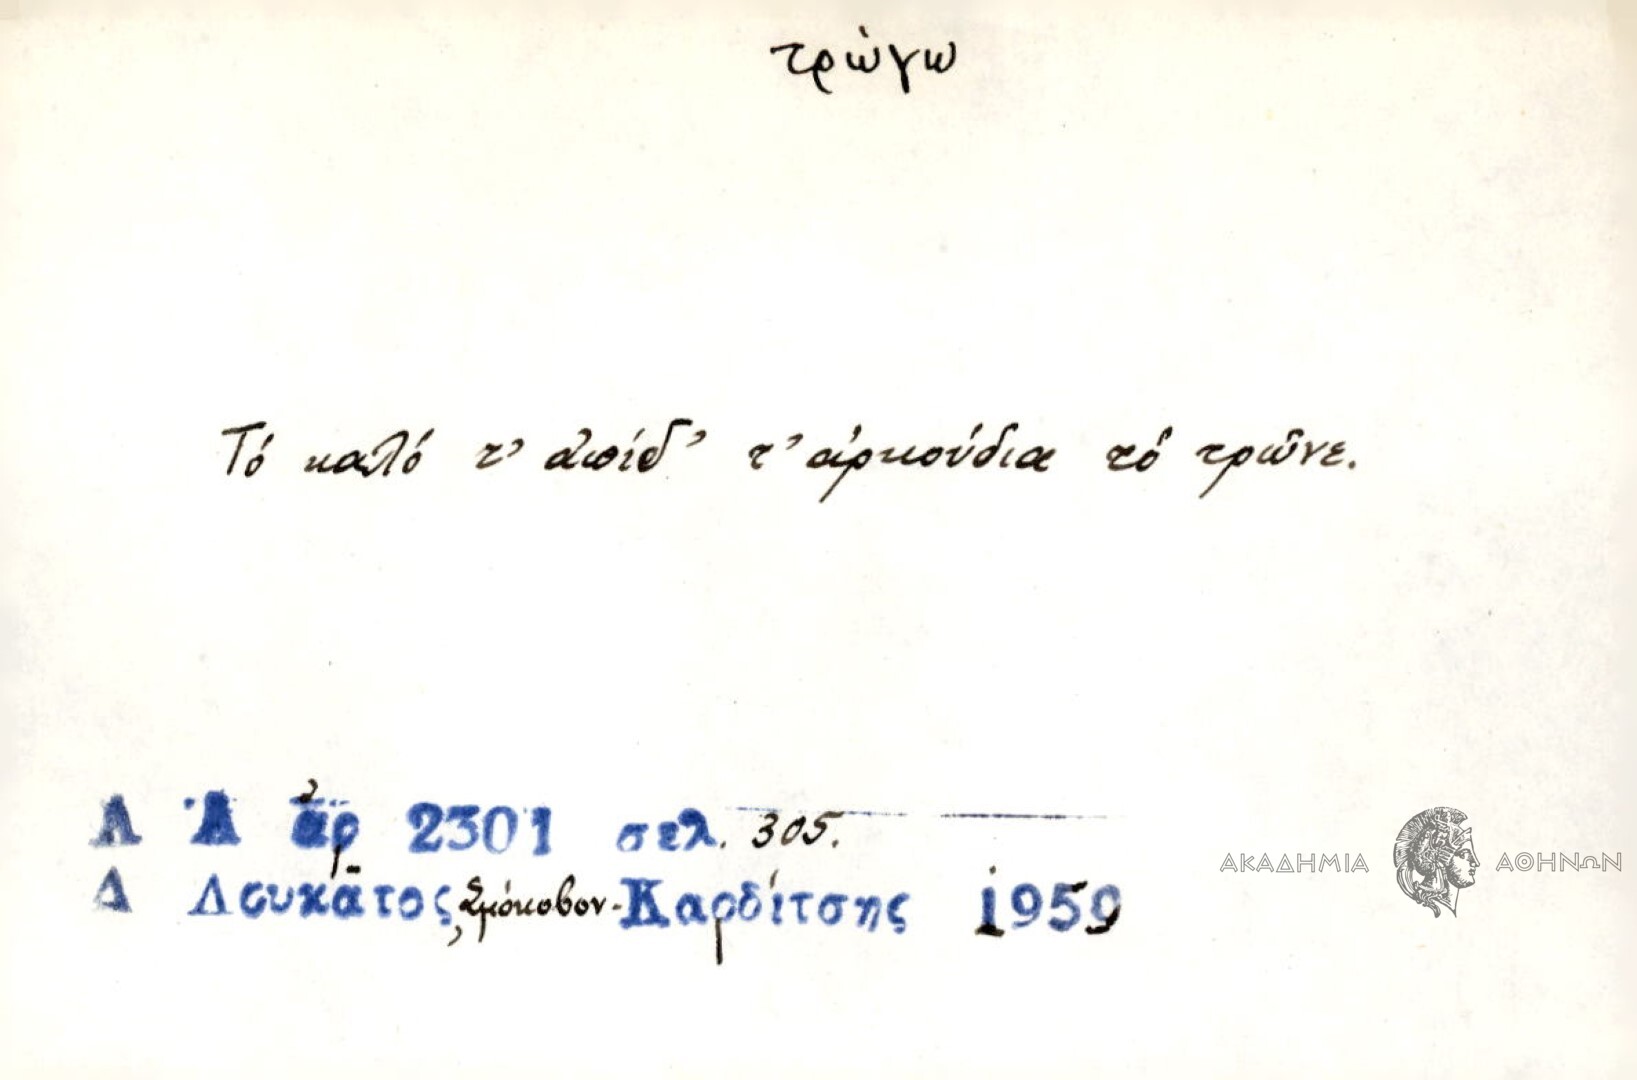 τρώγω
Τό καλό τ' ἀπίδ' τ' ἀρκούδια τό τρῶνε.
Λ Α ἀρ 2301 σελ. 305.
Δ Λουκᾶτος, Σμόκοβον - Καρδίτσης 1959
ΑΚΑΔΗΜΙΑ ΑΘΗΝΩΝ